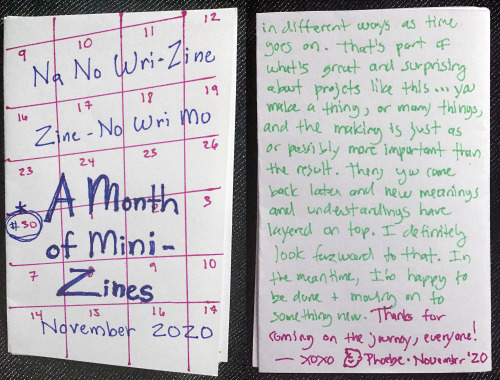 9 10 11 12
Na No Wri-Zine
16 17 18 19
Zine-No Wri Mo
23 24 25 26
* A Month
#30 3
of Mini-
7 8 9 10
Zines
14 15 16 17
November 2020
in different ways as time
goes on. That's part of
what's great and surprising
about projects like this... you
make a thing, or many things,
and the making is just as
or possibly more important than
the result. Then, you come
back later and new meanings
and understandings have
layered on top. I definitely
look forward to that. In
the meantime, I'm happy to
be done + moving on to
something new. Thanks for
coming on the journey, everyone!
— xoxo Phoebe • November '20